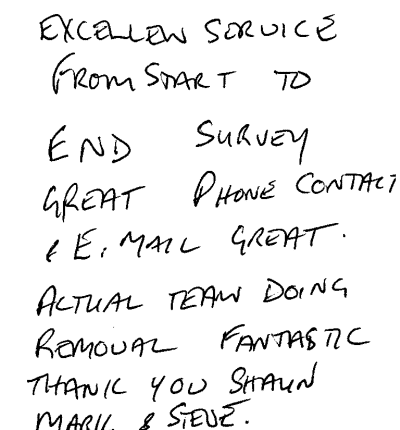 EXCELLENT SERVICE
FROM START TO
END SURVEY
GREAT PHONE CONTACT
& E. MAIL GREAT.
ACTUAL TEAM DOING
REMOVAL FANTASTIC
THANK YOU SHAUN
MARK & STEVE.